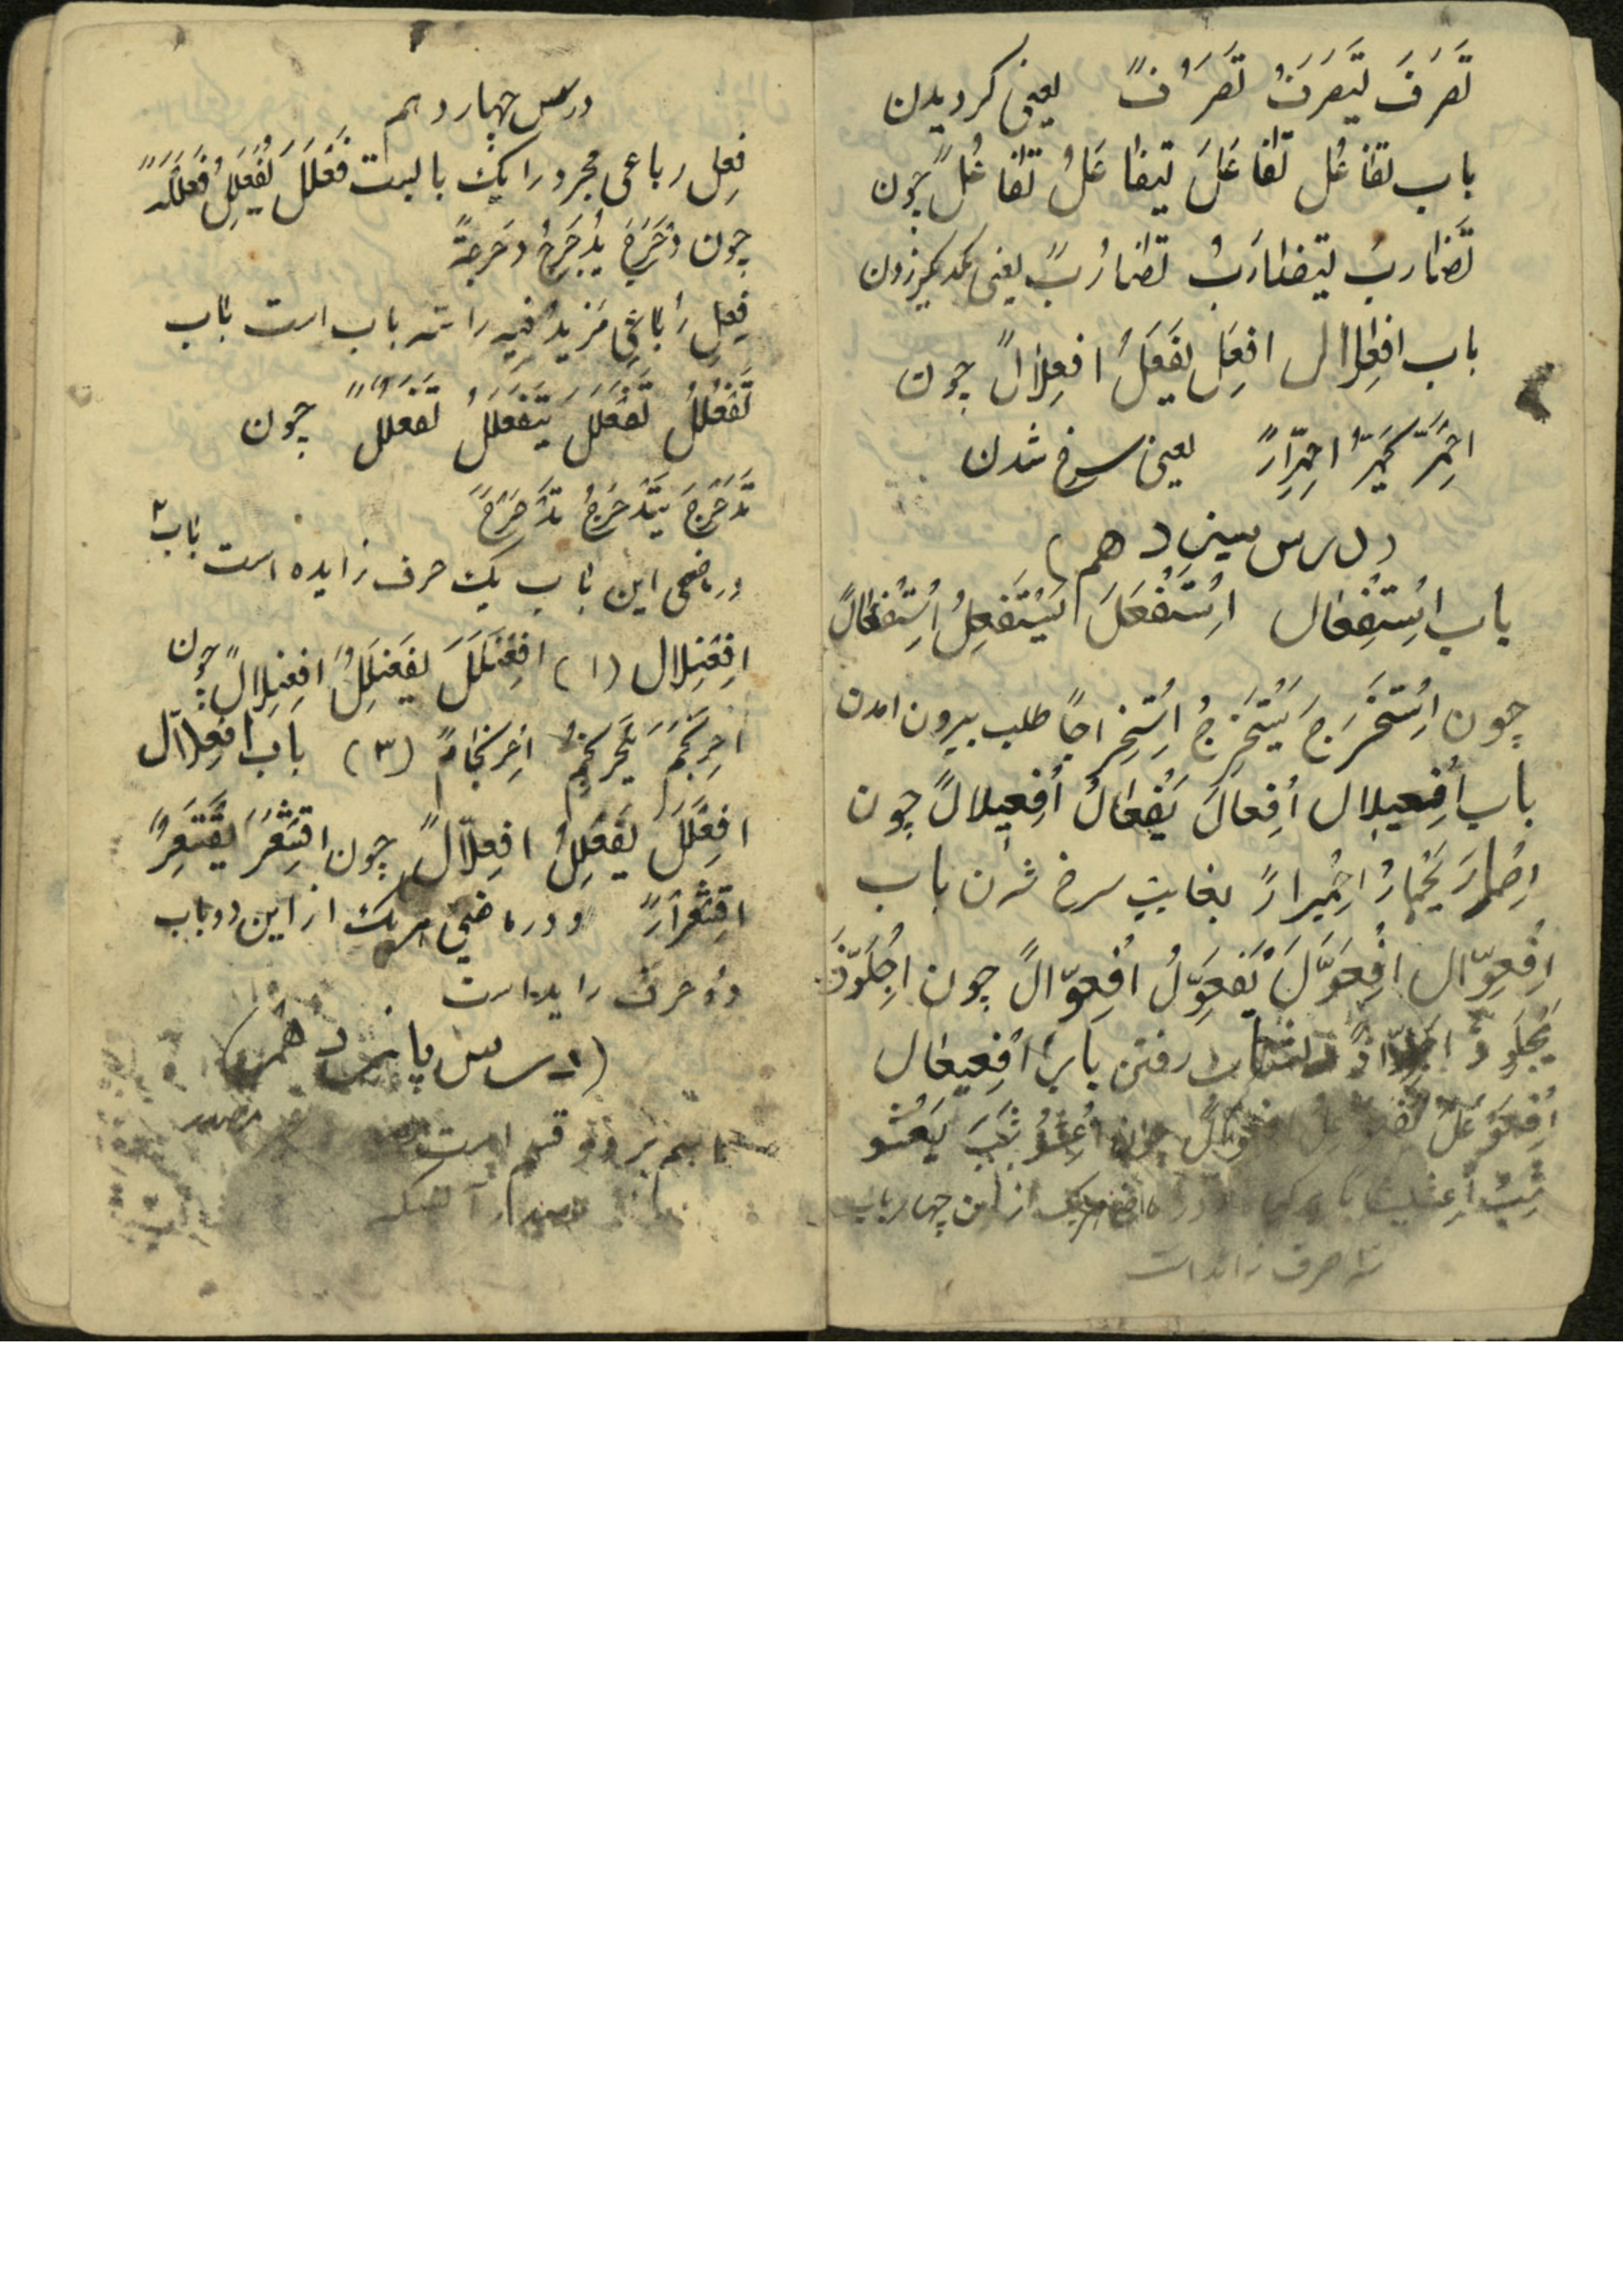 تَصَرَفَ یَتَصَرَفُ تَصَرُفً یعنی کردیدن
باب تفاعُل تَفاعَلَ یَتَفاعَلُ تَفاعُلً چون
تَضاربَ یتضارَبُ تضارُبً یعنی یکدیگر زدن
باب افعِلال افعِلَ یَفعَلُ افعِلالً چون
احِمَرَّ یَحمَرُّ احمِرارً یعنی سرخ شدن
(درس سیزدهم)
باب اِسْتِفْعال اِسْتَفْعَلَ یَسْتَفْعِلُ اِسْتِفْعالً
چون اِسْتَخْرَجَ یَسْتَخْرِجُ اِسْتِخْراجاً طلب بیرون امدن
باب اِفْعیلال اِفْعالَ یَفْعالُ اِفْعیلالً چون
اِحْمارَ یَحْمارُ اِحْمیرارً بغایت سرخ شدن باب
اِفْعِوّال اِفْعَوَّلَ یَفْعَوِّلُ اِفْعِوّالً چون اِجْلَوَّذَ
یَجْلَوِذُ رفتن باب اِفْعیعال
اِفْعَوْعَلَ چون اِعْشَوْشَبَ یَعْشَو
شِبُ از این چهار باب
سه حرف زاید است
درس چهاردهم
فِعلِ رباعی مجرد را یک بابست فَعْلَلَ یُفَعْلِلُ فَعْلَلَةً
چون دَحْرَجَ یُدَحْرِجُ دَحْرَجَةً
فِعلِ رُباعیِ مَزیدُ فیِه را سه باب است باب
تَفَعْلُلُ تَفَعْلَلَ یَتَفَعْلَلُ تَفَعْلُلً چون
تَدَحْرَجَ یَتَدَحْرَجُ تَدَحْرُجً
در ماضی این باب یک حرف زایده است باب ۲
اِفْعِنْلال (۱) اِفْعَنْلَلَ یَفْعَنْلِلُ اِفْعِنْلالً چون
احرَنْجَمَ یَحْرَنْجِمُ احْرِنْجامً (۳) باب اِفْعِلّال
افعَلَلَّ یَفْعَلِلُّ افعِلّالً چون اقْشَعَرَّ یَقْشَعِرُّ
اقْشِعْرارً و در ماضی هر یک از این دو باب
دو حرف زاید است
(درس پانزدهم)
اسم بر دو قسم است مصدر